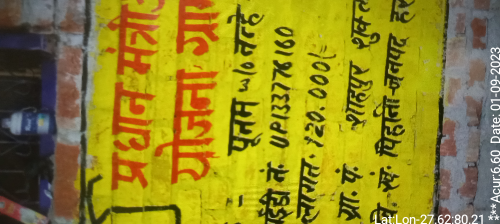 प्रधान मंत्री
योजना ग्रा
पूनम w/o नन्हे
ईडी नं: UP133776160
लागत: 120.000/=
ग्रा. पं. शाहपुर शुक्ल
पिहानी जनपद हर
Lat:Lon-27.62:80.21
Acur:6.60 Date:01-09-2023